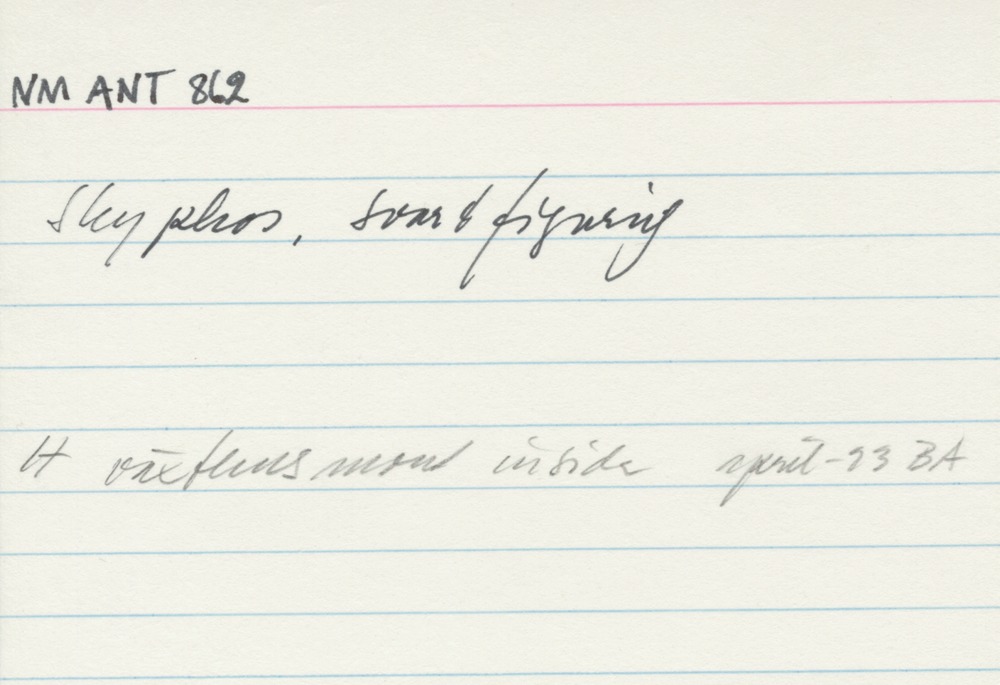 NM ANT 862
Skyphos, svartfigurig
H växthus mont inside april-93 BA